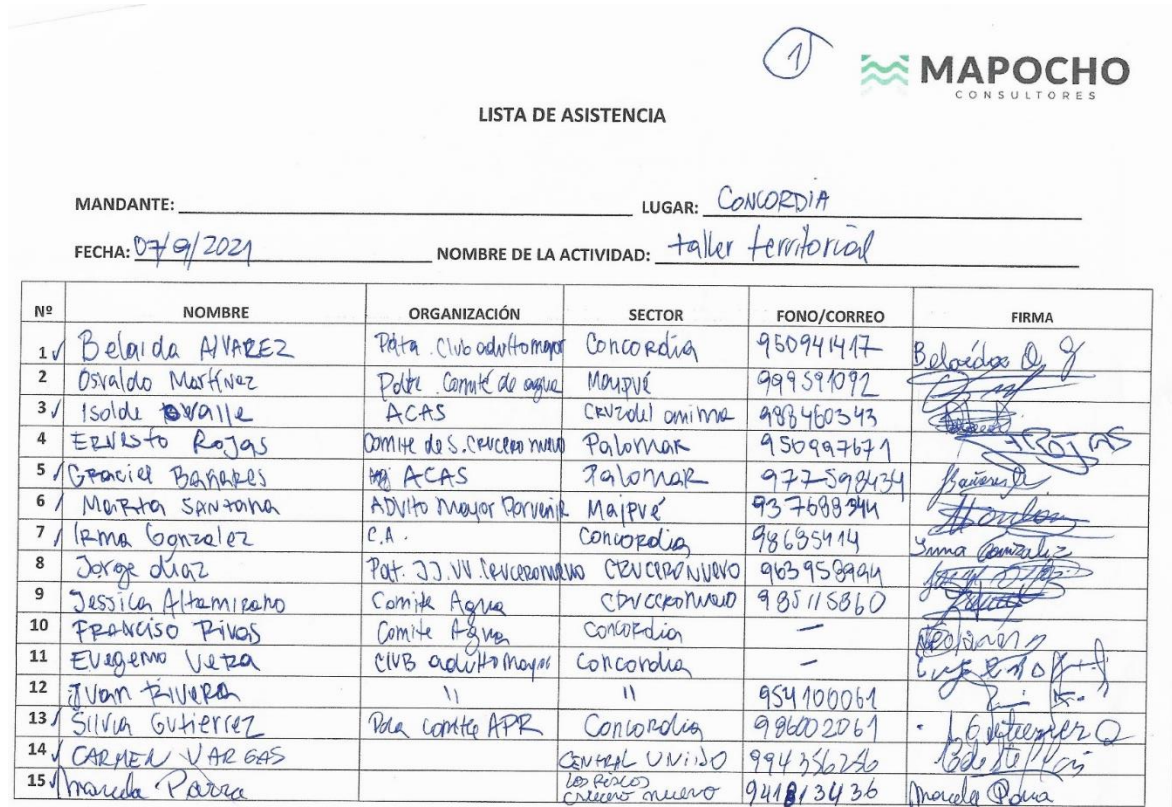 1
MAPOCHO
CONSULTORES
LISTA DE ASISTENCIA
MANDANTE: LUGAR: CONCORDIA
FECHA: 07/9/2021 NOMBRE DE LA ACTIVIDAD: taller territorial
Nº NOMBRE ORGANIZACIÓN SECTOR FONO/CORREO FIRMA
1 Belaida ALVAREZ Club adulto mayor Concordia 950941417
2 Osvaldo Martínez Comité de agua Maypvé 999591092
3 Isolde Ovalle ACAS Cruz del anima 988460343
4 ERNESTO Rojas Comite de S. CRUCERO nuevo Palomar 950997671 ROJAS
5 Graciel Bañares ACAS Palomar 977598434 Bañares
6 MARTA SANTANA ADULTO Mayor Porvenir Maipvé 937688344
7 IRma Gonzalez C.A. Concordia 98635414 Irma Gonzalez
8 Jorge díaz JJ.VV. CRUCERO NUEVO CRUCERO NUEVO 963958944
9 Jessica Altamirano Comite Agua CRUCERO NUEVO 985115860
10 FRANCISO Rivas Comite Agua Concordia –
11 Evegenio Vera CLUB adulto Mayor Concordia –
12 JUAN RIVERA " " 954100061
13 Silvia Gutierrez comite APR Concordia 996002061 Gutierrez
14 CARMEN VARGAS CENTRAL UNIDO 994356256
15 Marcela Parra Los Riscos crucero nuevo 941813436 Marcela Parra